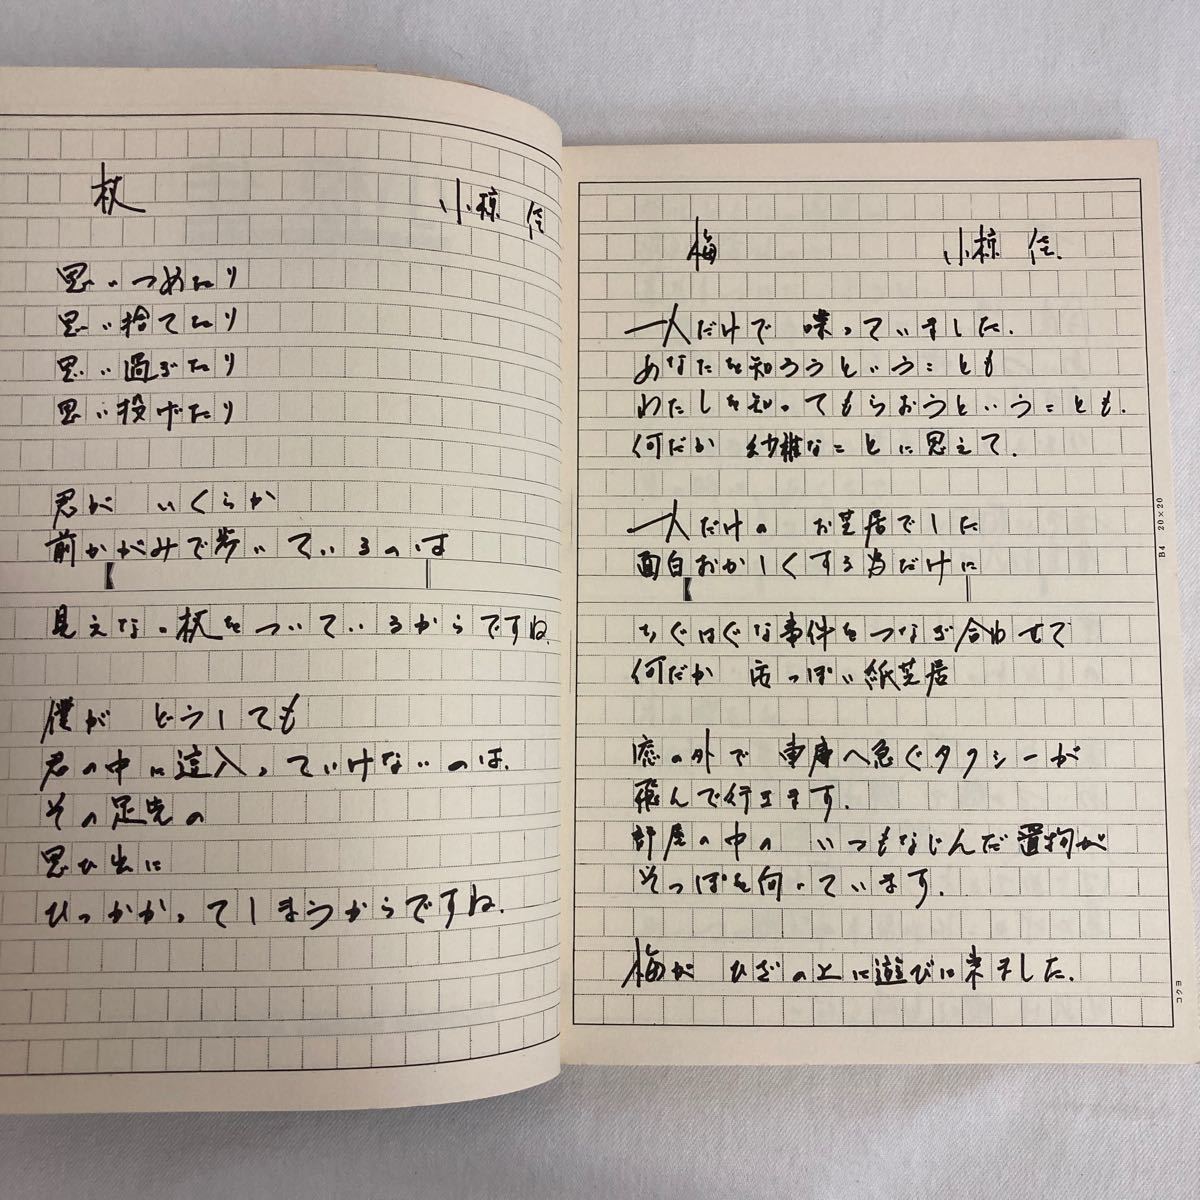 杖 小椋 佳
思いつめたり
思い捨てたり
思い過ぎたり
思い投げたり
君が いくらか
前かがみで歩いているのは
見えない杖をついているからですね
僕が どうしても
君の中に這入っていけないのは、
その足先の
思ひ出に
ひっかかってしまうからですね.
梅 小椋 佳.
一人だけで 喋っていました.
あなたを知ろうということも
わたしを知ってもらおうということも.
何だか 幼稚なことに思えて.
一人だけの お芝居でした
面白おかしくする為だけに
ちぐはぐな事件をつなぎ合わせて
何だか 安っぽい紙芝居
窓の外で 車庫へ急ぐタクシーが
飛んで行きます.
部屋の中の いつもなじんだ置物が
そっぽを向いています.
梅が ひざの上に遊びに来ました.
B4 20×20
コクヨ